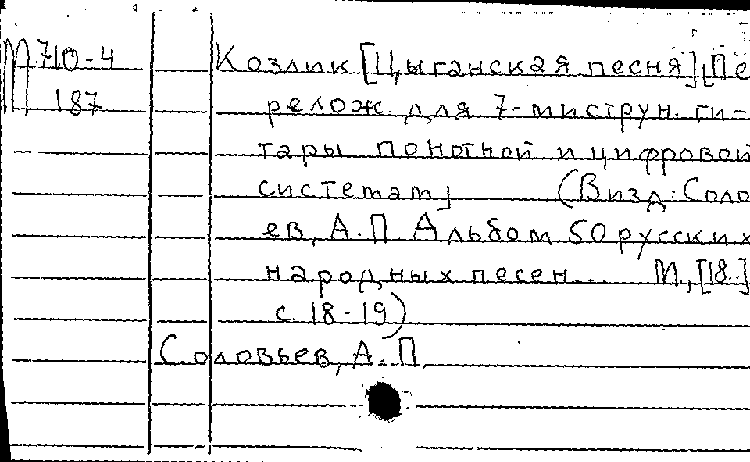 М 710-4 Козлик [Цыганская песня] [Пе
187 релож. для 7-миструн. ги-
тары по нотной и цифровой
системам] (В изд: Соло
ев, А.П Альбом 50 русских
народных песен... М., [18.]
с 18-19)
Соловьев, А.П.